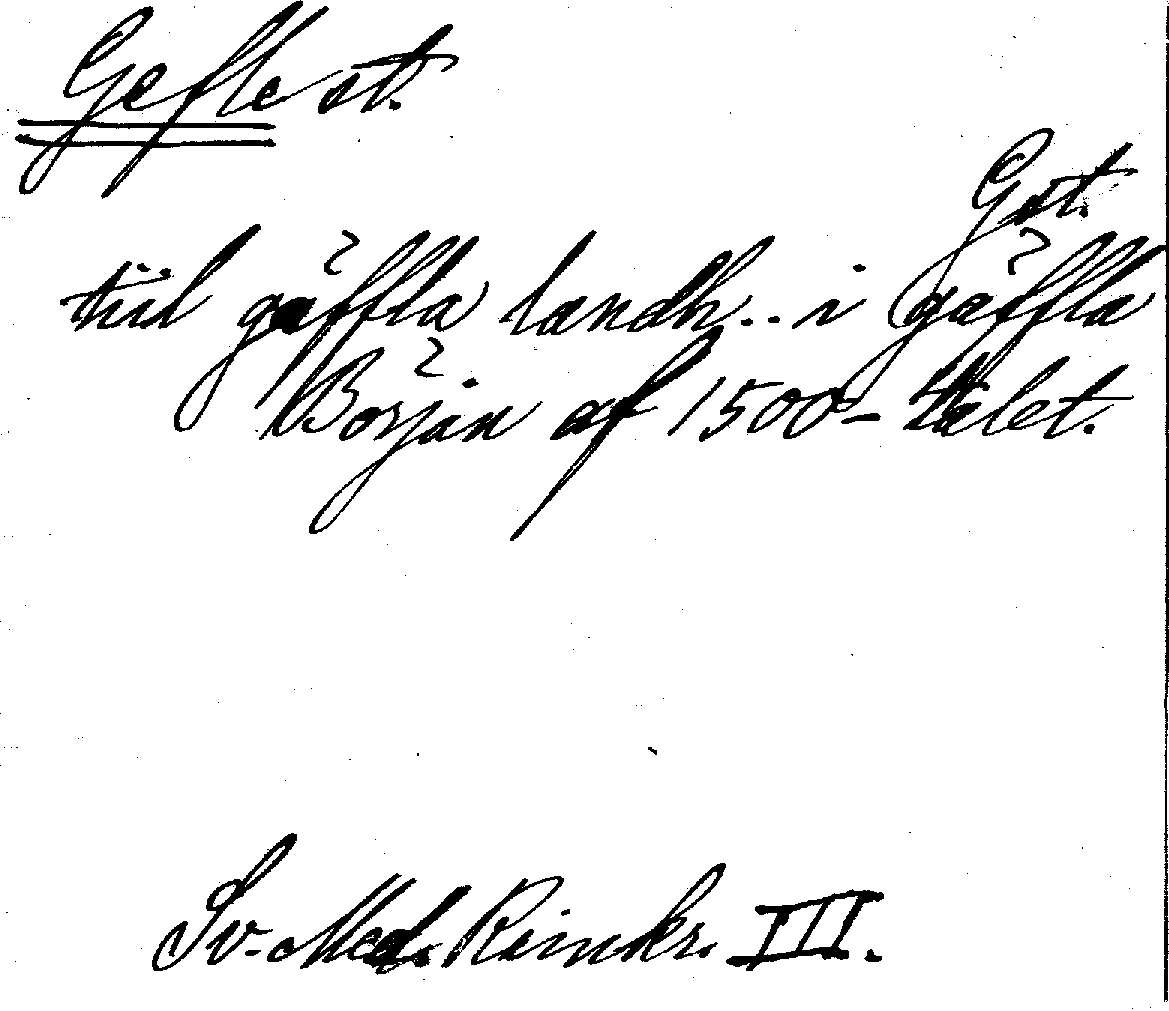 Gefle st.
Gst.
tiil gäffla landh.. i gäffla
Början af 1500-talet.
Sv. Med. Rimkr. III.